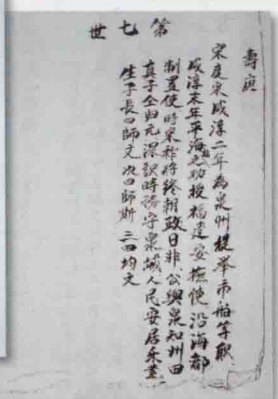 第七世
壽庚
宋度宗咸淳二年為泉州提舉市舶等職
咸淳末年平海寇功授福建安撫使沿海都
制置使時宋祚將終朝政日非公與泉知州田
真子仝归元深識時務守泉城人民安居樂業
生子長曰師文次曰師斯 三曰均文